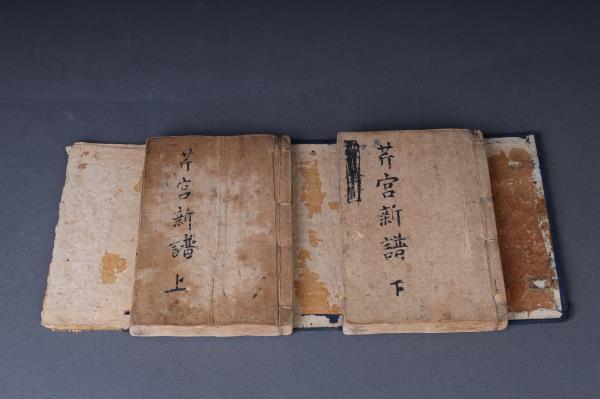 芹宮新譜上
芹宮新譜下